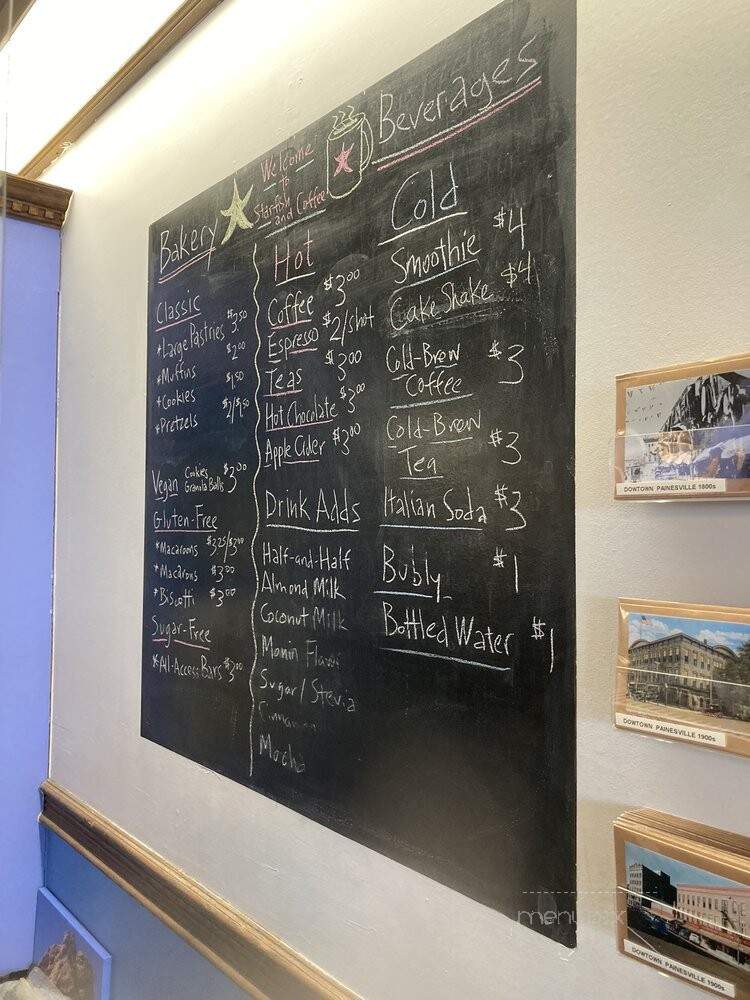 Welcome
to
Starfish
and Coffee
Bakery
Classic
*Large Pastries $3.50
*Muffins $2.00
*Cookies $1.50
*Pretzels
Vegan Cookies $3.00
Granola Balls
Gluten-Free
*Macaroons $3.25/$3.00
*Macarons $3.00
*Biscotti $3.00
Sugar-Free
*All-Access Bars $3.00
Beverages
Hot
Coffee $3.00
Espresso $2/shot
Teas $3.00
Hot Chocolate $3.00
Apple Cider $3.00
Drink Adds
Half-and-Half
Almond Milk
Coconut Milk
Monin Flavor
Sugar/Stevia
Cinnamon
Mocha
Cold
Smoothie $4
Cake Shake $4
Cold-Brew
Coffee $3
Cold-Brew
Tea $3
Italian Soda $3
Bubly $1
Bottled Water $1
DOWTOWN PAINESVILLE 1800s
DOWTOWN PAINESVILLE 1900s
DOWTOWN PAINESVILLE 1900s